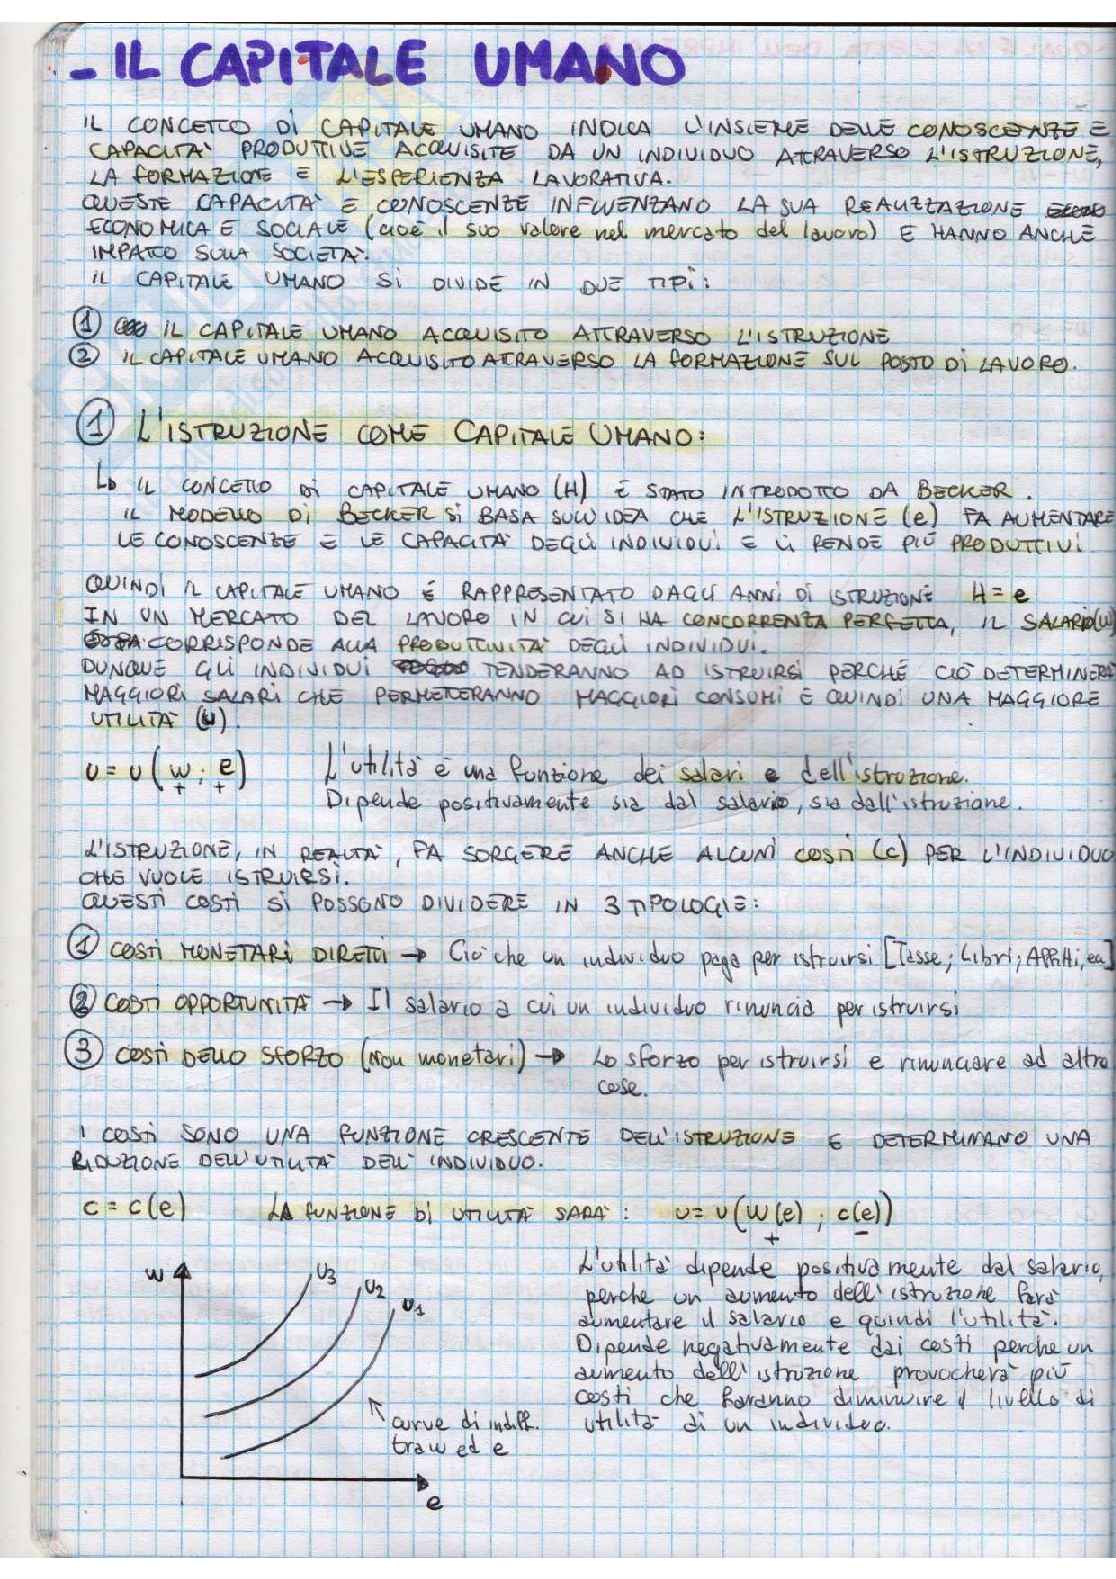 - IL CAPITALE UMANO
IL CONCETTO DI CAPITALE UMANO INDICA L'INSIEME DELLE CONOSCENZE E
CAPACITA' PRODUTTIVE ACQUISITE DA UN INDIVIDUO ATTRAVERSO L'ISTRUZIONE,
LA FORMAZIONE E L'ESPERIENZA LAVORATIVA.
QUESTE CAPACITA' E CONOSCENZE INFLUENZANO LA SUA REALIZZAZIONE
ECONOMICA E SOCIALE (cioè il suo valore nel mercato del lavoro) E HANNO ANCHE
IMPATTO SULLA SOCIETA'.
IL CAPITALE UMANO SI DIVIDE IN DUE TIPI:
1 IL CAPITALE UMANO ACQUISITO ATTRAVERSO L'ISTRUZIONE
2 IL CAPITALE UMANO ACQUISITO ATTRAVERSO LA FORMAZIONE SUL POSTO DI LAVORO.
1 L'ISTRUZIONE COME CAPITALE UMANO:
↳ IL CONCETTO DI CAPITALE UMANO (H) È STATO INTRODOTTO DA BECKER.
IL MODELLO DI BECKER SI BASA SULL'IDEA CHE L'ISTRUZIONE (e) FA AUMENTARE
LE CONOSCENZE E LE CAPACITA' DEGLI INDIVIDUI E LI RENDE PIÙ PRODUTTIVI
QUINDI IL CAPITALE UMANO È RAPPRESENTATO DAGLI ANNI DI ISTRUZIONE H = e
IN UN MERCATO DEL LAVORO IN CUI SI HA CONCORRENZA PERFETTA, IL SALARIO (w)
CORRISPONDE ALLA PRODUTTIVITA' DEGLI INDIVIDUI.
DUNQUE GLI INDIVIDUI TENDERANNO AD ISTRUIRSI PERCHÉ CIÒ DETERMINERÀ
MAGGIORI SALARI CHE PERMETTERANNO MAGGIORI CONSUMI E QUINDI UNA MAGGIORE
UTILITA' (U).
U = U(w ; e) L'utilità è una funzione dei salari e dell'istruzione.
+ + Dipende positivamente sia dal salario, sia dall'istruzione.
L'ISTRUZIONE, IN REALTA', FA SORGERE ANCHE ALCUNI COSTI (C) PER L'INDIVIDUO
CHE VUOLE ISTRUIRSI.
QUESTI COSTI SI POSSONO DIVIDERE IN 3 TIPOLOGIE:
1 COSTI MONETARI DIRETTI → Ciò che un individuo paga per istruirsi [Tasse; Libri; Affitti, ecc]
2 COSTI OPPORTUNITA' → Il salario a cui un individuo rinuncia per istruirsi
3 COSTI DELLO SFORZO (Non monetari) → Lo sforzo per istruirsi e rinunciare ad altre
cose.
I COSTI SONO UNA FUNZIONE CRESCENTE DELL'ISTRUZIONE E DETERMINANO UNA
RIDUZIONE DELL'UTILITA' DELL'INDIVIDUO.
C = C(e) LA FUNZIONE DI UTILITA' SARA': U = U(W(e) ; C(e))
+ -
L'utilità dipende positivamente dal salario,
perche un aumento dell'istruzione farà
aumentare il salario e quindi l'utilità.
Dipende negativamente dai costi perche un
aumento dell'istruzione provocherà più
costi che faranno diminuire il livello di
utilità di un individuo.
w
U3
U2
U1
curve di indiff.
tra w ed e
e